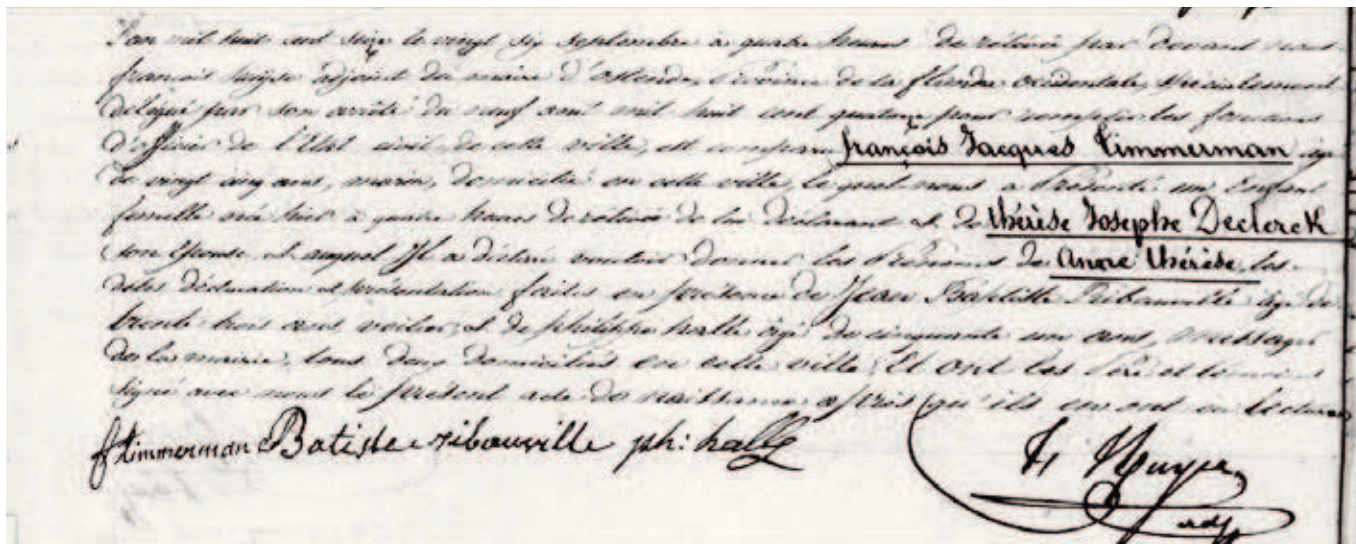 L'an mil huit cent seize le vingt six septembre à quatre heures de relevée par devant nous
françois huyse adjoint du maire d'ostende, Province de la flandre occidentale, spécialement
délégué par son arrêté du neuf mil huit cent quatorze pour remplir les fonctions
d'officier de l'Etat civil de cette ville, est comparu françois Jacques Timmerman agé
de vingt cinq ans, marin, domicilié en cette ville, lequel nous a Présenté un Enfant
femelle née à quatre heures de relevée de lui déclarant et de thérèse Josephe Declerck
son Epouse, et auquel Il a déclaré vouloir donner les Prénoms de Anne thérèse, les
dites déclaration et présentation faites en présence de Jean Baptiste Ribauville agé de
trente trois ans voilier, et de philippe halle agé de cinquante un ans, messager
de la mairie, tous deux domiciliés en cette ville, Et ont les Père et témoins
signé avec nous le présent acte de naissance après qu'ils en ont eu lecture
f timmerman Batiste ribauville ph: halle
F Huyse
adj